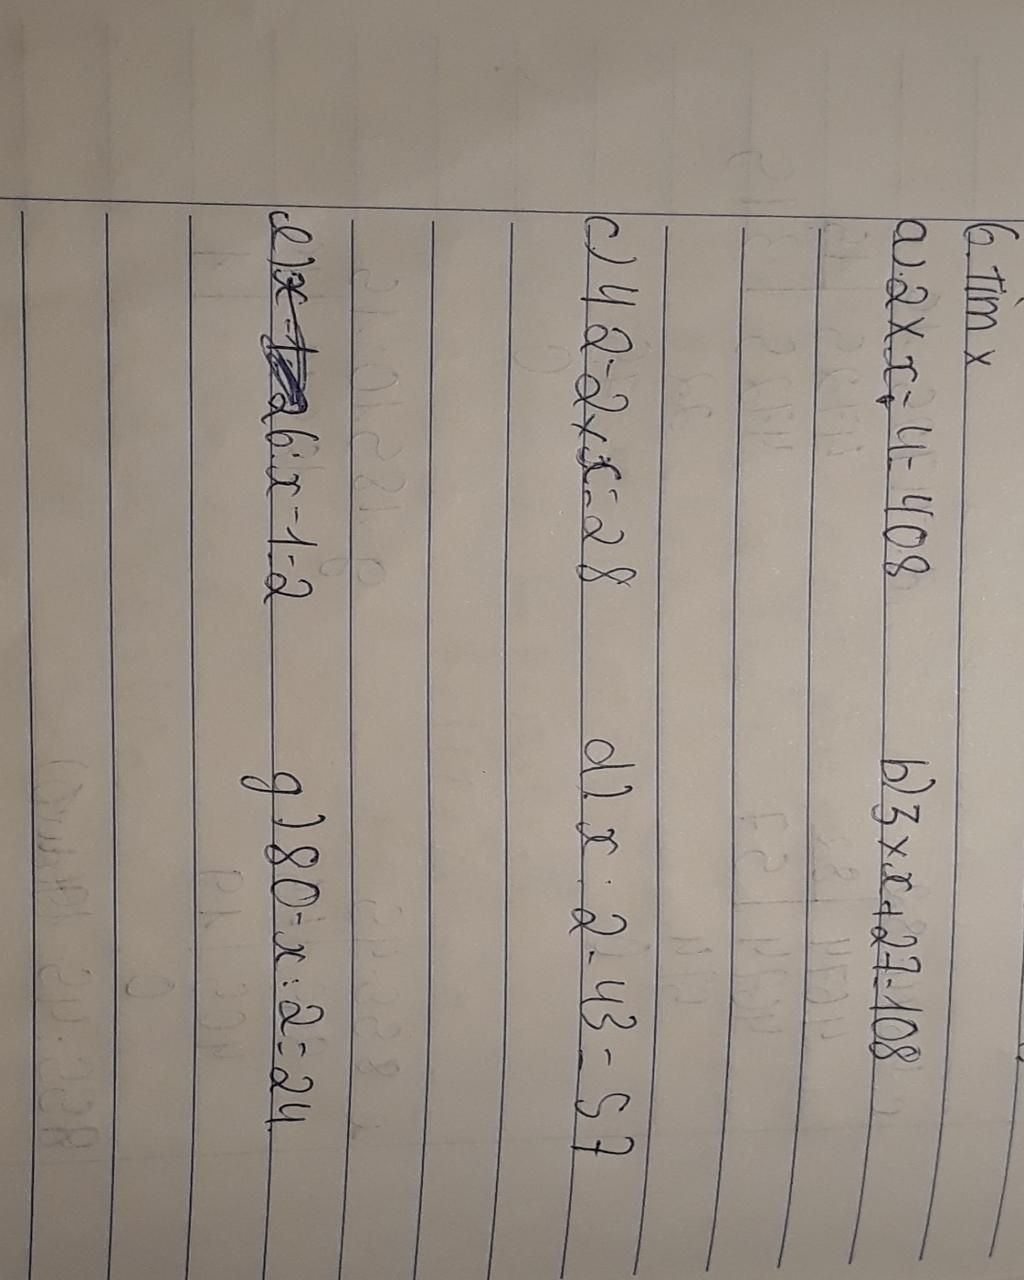 6. Tìm x
a) 2 x x - 4 = 408 b) 3 x x + 27 = 108
c) 42 - 2 x x = 28 d) x : 2 - 43 = 57
e) 6 : x - 1 = 2 g) 80 - x : 2 = 24